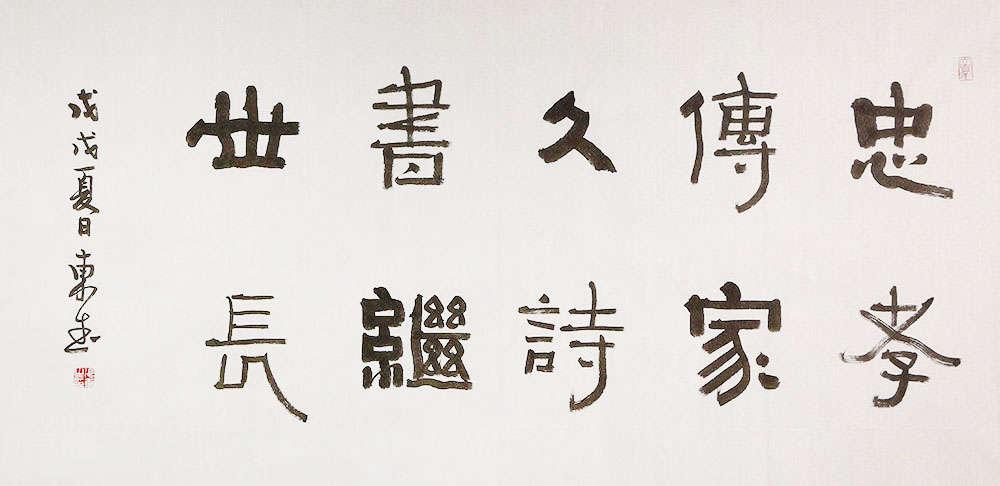 忠孝
傳家
久詩
書繼
世長
戊戌夏日東